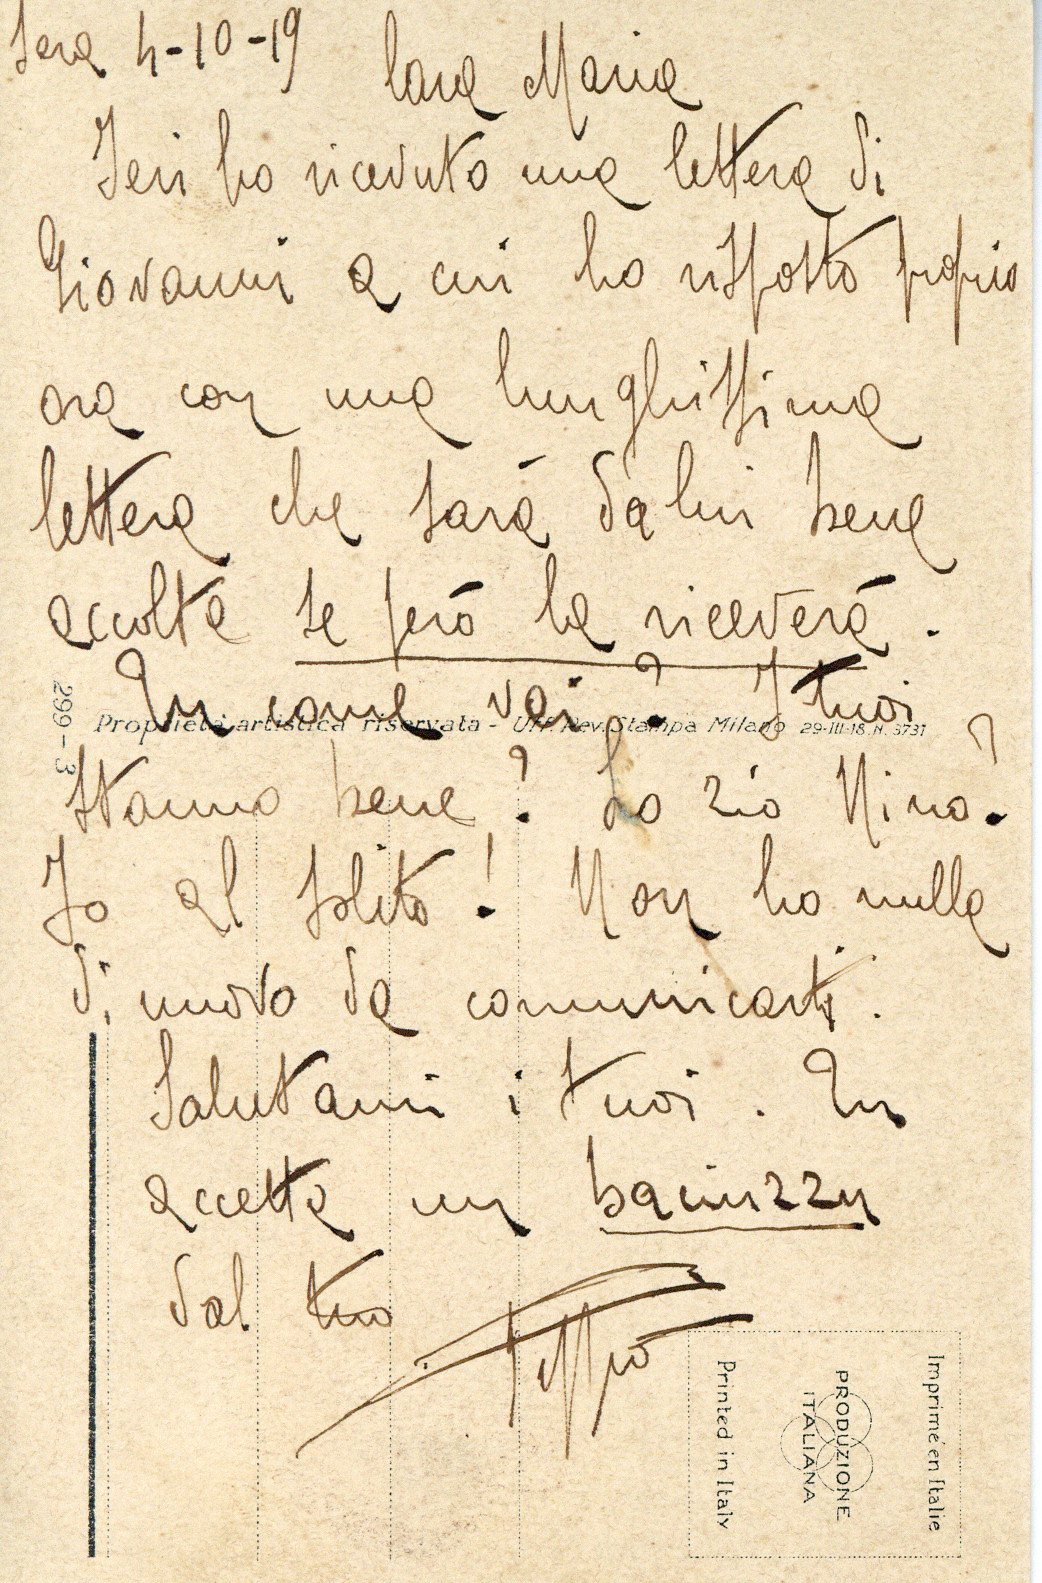 Sera 4-10-19
Cara Maria
Jeri ho ricevuto una lettera di
Giovanni a cui ho risposto proprio
ora con una lunghissima
lettera che sarà da lui bene
accolta se però la riceverà.
Tu come vai? I tuoi
299-3 Proprietà artistica riservata - Uff. Rev. Stampa Milano 29-III-18. N. 3731
stanno bene? Lo zio Nino?
Jo al solito! Non ho nulla
di nuovo da comunicarti.
Salutami i tuoi. Tu
accetta un baciuzzu
dal tuo
Peppo
Printed in Italy
PRODUZIONE
ITALIANA
Imprimé en Italie